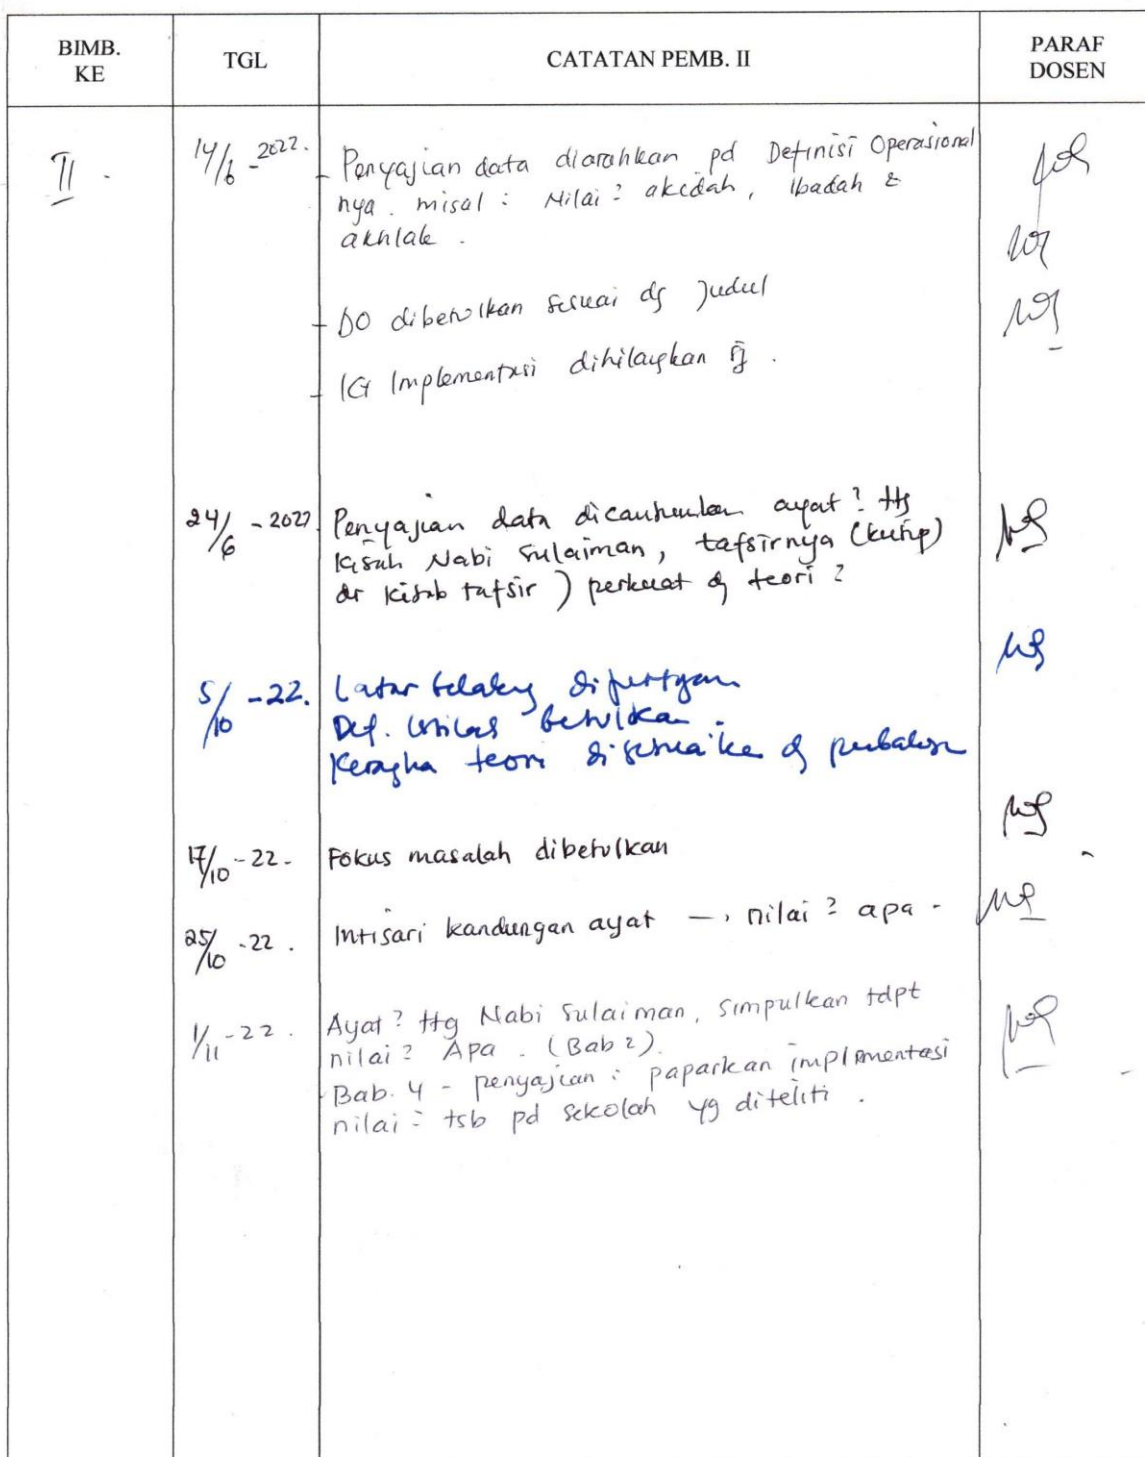 BIMB. KE
TGL
CATATAN PEMB. II
PARAF DOSEN
II .
14/6 - 2022.
- Penyajian data diarahkan pd Definisi Operasional
nya. misal : Nilai² akidah, Ibadah &
akhlak .
- DO dibetulkan sesuai dg Judul
- KG Implementasi dihilangkan
24/6 - 2022
Penyajian data dicantumkan ayat² ttg
kisah Nabi Sulaiman, tafsirnya (kutip)
dr kitab tafsir ) perkuat dg teori²
5/10 - 22.
Latar belakang dipertajam
Def. Istilah betulkan .
Kerangka teori disesuaikan dg
17/10 - 22 -
Fokus masalah dibetulkan
25/10 - 22 .
Intisari kandungan ayat → nilai² apa -
1/11 - 22 .
Ayat² ttg Nabi Sulaiman, simpulkan tdpt
nilai² Apa . (Bab 2).
Bab. 4 - penyajian : paparkan implementasi
nilai² tsb pd sekolah yg diteliti .